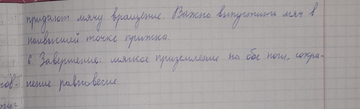 придают мячу вращение. Важно выпустить мяч в
наивысшей точке прыжка.
6 Завершение: мягкое приземление на обе ноги, сохра-
нение равновесие.